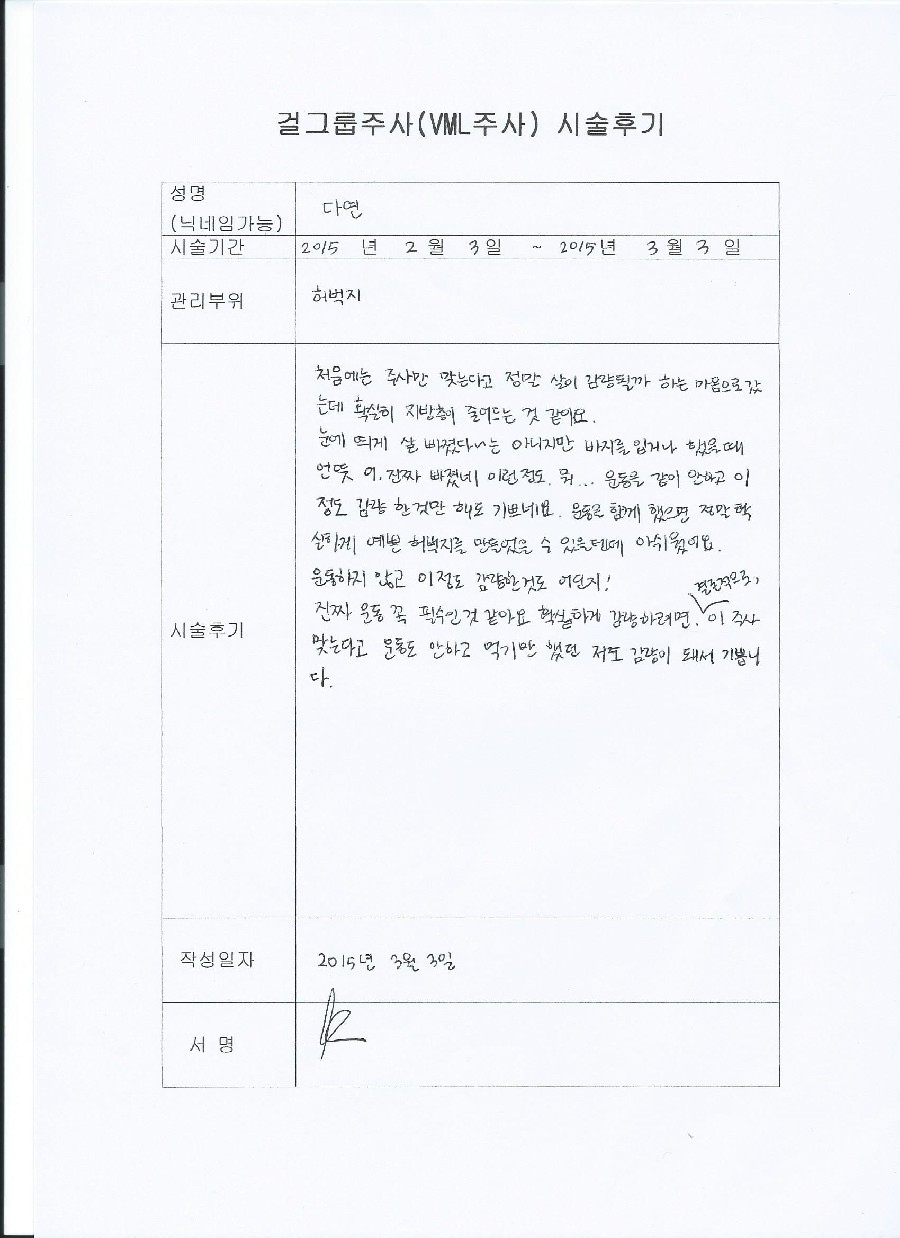 걸그룹주사(VML주사) 시술후기
성명
(닉네임가능)
다연
시술기간
2015 년 2 월 3일 ~ 2015년 3월 3일
관리부위
허벅지
시술후기
처음에는 주사만 맞는다고 정말 살이 감량될까 하는 마음으로 갔
는데 확실히 지방층이 줄어드는 것 같아요.
눈에 띄게 살 빠졌다~는 아니지만 바지를 입거나 했을때
언뜻 어. 진짜 빠졌네 이런정도. 뭐... 운동을 같이 안하고 이
정도 감량 한것만 해도 기쁘네요. 운동을 함께 했으면 정말 확
실하게 예쁜 허벅지를 만들었을 수 있을텐데 아쉬웠어요.
운동하지 않고 이정도 감량한것도 어딘지!
진짜 운동 꼭 필수인것 같아요 확실하게 감량하려면. 결론적으로, 이 주사
맞는다고 운동도 안하고 먹기만 했던 저도 감량이 돼서 기쁩니
다.
작성일자
2015년 3월 3일
서 명